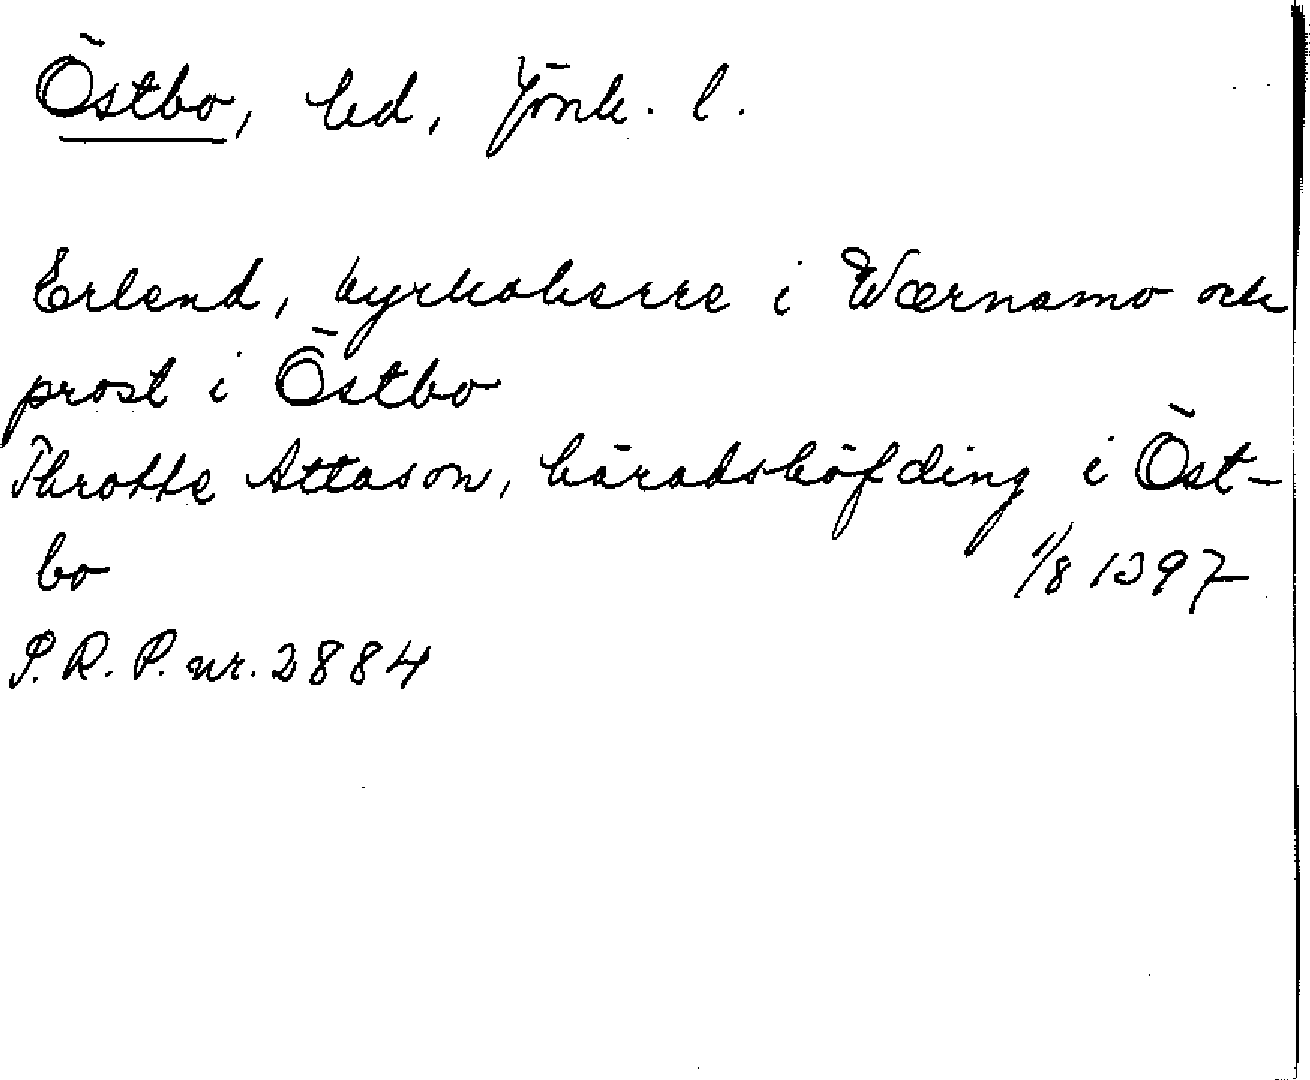 Östbo, hd, Jönk. l.
Erlend, kyrkoherre i Wærnamo och
prost i Östbo
Throtte Attason, häradshöfding i Öst-
bo 1/8 1397
S.R.P. nr. 2884